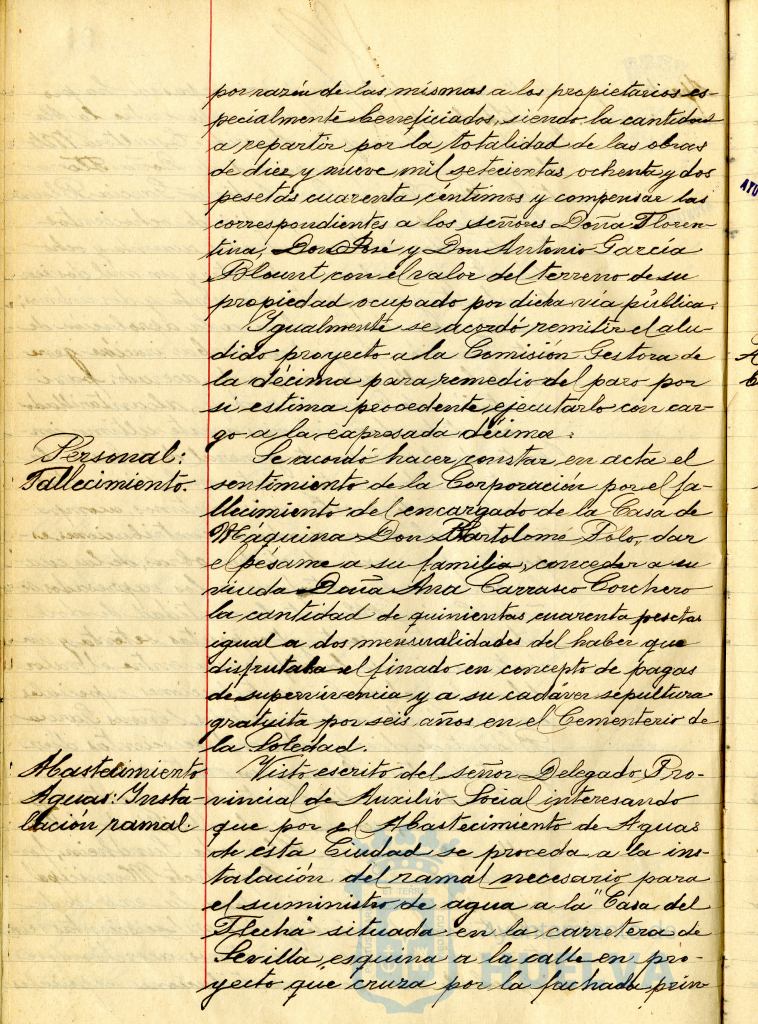 por razón de las mismas a los propietarios es-
pecialmente beneficiados, siendo la cantidad
a repartir por la totalidad de las obras
de diez y nueve mil setecientas ochenta y dos
pesetas cuarenta céntimos y compensar las
correspondientes a los señores Doña Floren-
tina, Don José y Don Antonio García
Blount, con el valor del terreno de su
propiedad ocupado por dicha vía pública.
Igualmente se acordó remitir el alu-
dido proyecto a la Comisión Gestora de
la décima para remedio del paro por
si estima procedente ejecutarlo con car-
go a la expresada décima.
Personal:
Fallecimiento.
Se acordó hacer constar en acta el
sentimiento de la Corporación por el fa-
llecimiento del encargado de la Casa de
Máquina Don Bartolomé Polo, dar
el pésame a su familia, conceder a su
viuda Doña Ana Carrasco Corchero
la cantidad de quinientas cuarenta pesetas
igual a dos mensualidades del haber que
disfrutaba el finado en concepto de pagas
de supervivencia y a su cadáver sepultura
gratuita por seis años en el Cementerio de
la Soledad.
Abastecimiento
Aguas: Insta-
lación ramal.
Visto escrito del señor Delegado Pro-
vincial de Auxilio Social interesando
que por el Abastecimiento de Aguas
de esta Ciudad se proceda a la ins-
talación del ramal necesario para
el suministro de agua a la "Casa del
Flecha" situada en la carretera de
Sevilla esquina a la calle en pro-
yecto que cruza por la fachada prin-
HUELVA